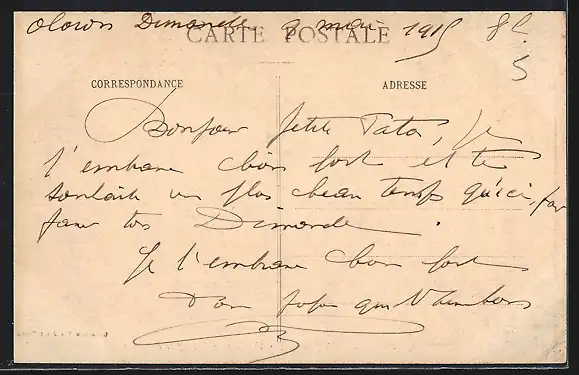 Oloron Dimanche 9 mai 1915
CARTE POSTALE
CORRESPONDANCE ADRESSE
Bonjour petite Tata, Je
t'embrasse bien fort et te
souhaite un plus beau temps qu'ici, pour
faire ton Dimanche.
Je t'embrasse bien fort
Ton qui